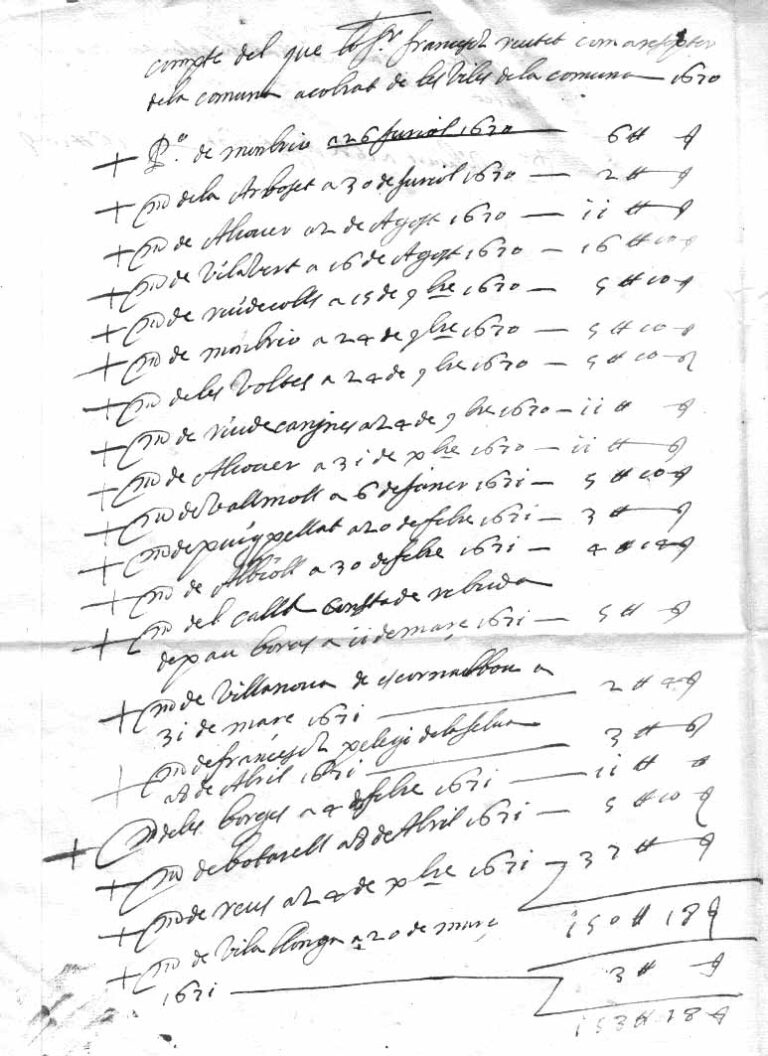 compte del que lo Sr francesch reutet com a receptor
dela comuna a cobrat de les viles dela comuna 1670
+ Po. de monbrio a 26 Juriol 1670 6 ₶ ꝭ
+ mo dela Arboset a 30 de Juriol 1670 — 2 ₶ ꝭ
+ mo de Alcouer a 2 de Agost 1670 — ii ₶ ꝭ
+ mo de Vilavert a 16 de Agost 1670 — 16 ₶ 10 ꝭ
+ mo de riudecolls a 15 de 9bre 1670 — 5 ₶ 10 ꝭ
+ mo de monbrio a 24 de 9bre 1670 — 5 ₶ 10 ꝭ
+ mo de les Voltes a 24 de 9bre 1670 — 5 ₶ 10 ꝭ
+ mo de riudecanyes a 24 de 9bre 1670 — ii ₶ ꝭ
+ mo de Alcouer a 3i de xbre 1670 — ii ₶ ꝭ
+ mo de Vallmoll a 6 de Janer 167i — 5 ₶ 10 ꝭ
+ mo de puigpellat a 20 de febre 167i — 3 ₶ ꝭ
+ mo de Albioll a 30 de febre 167i — 4 ₶ 14 ꝭ
+ mo del callt consta de rebuda
de pau boras a ii de març 167i — 5 ₶ ꝭ
+ mo de Villanoua de escornalbou a
3i de mars 167i — 2 ₶ 4 ꝭ
+ mo de francesch pelegi dela selua
a 8 de Abril 167i — 3 ₶ 6 ꝭ
+ mo deles borges a 4 de febre 167i — ii ₶ ꝭ
+ mo de botarell a 8 de Abril 167i — 5 ₶ 10 ꝭ
+ mo de reus a 24 de xbre 167i — 37 ₶ ꝭ
150 ₶ 18 ꝭ
+ mo de Vila llonga a 20 de març
167i — 3 ₶ ꝭ
i53 ₶ 18 ꝭ